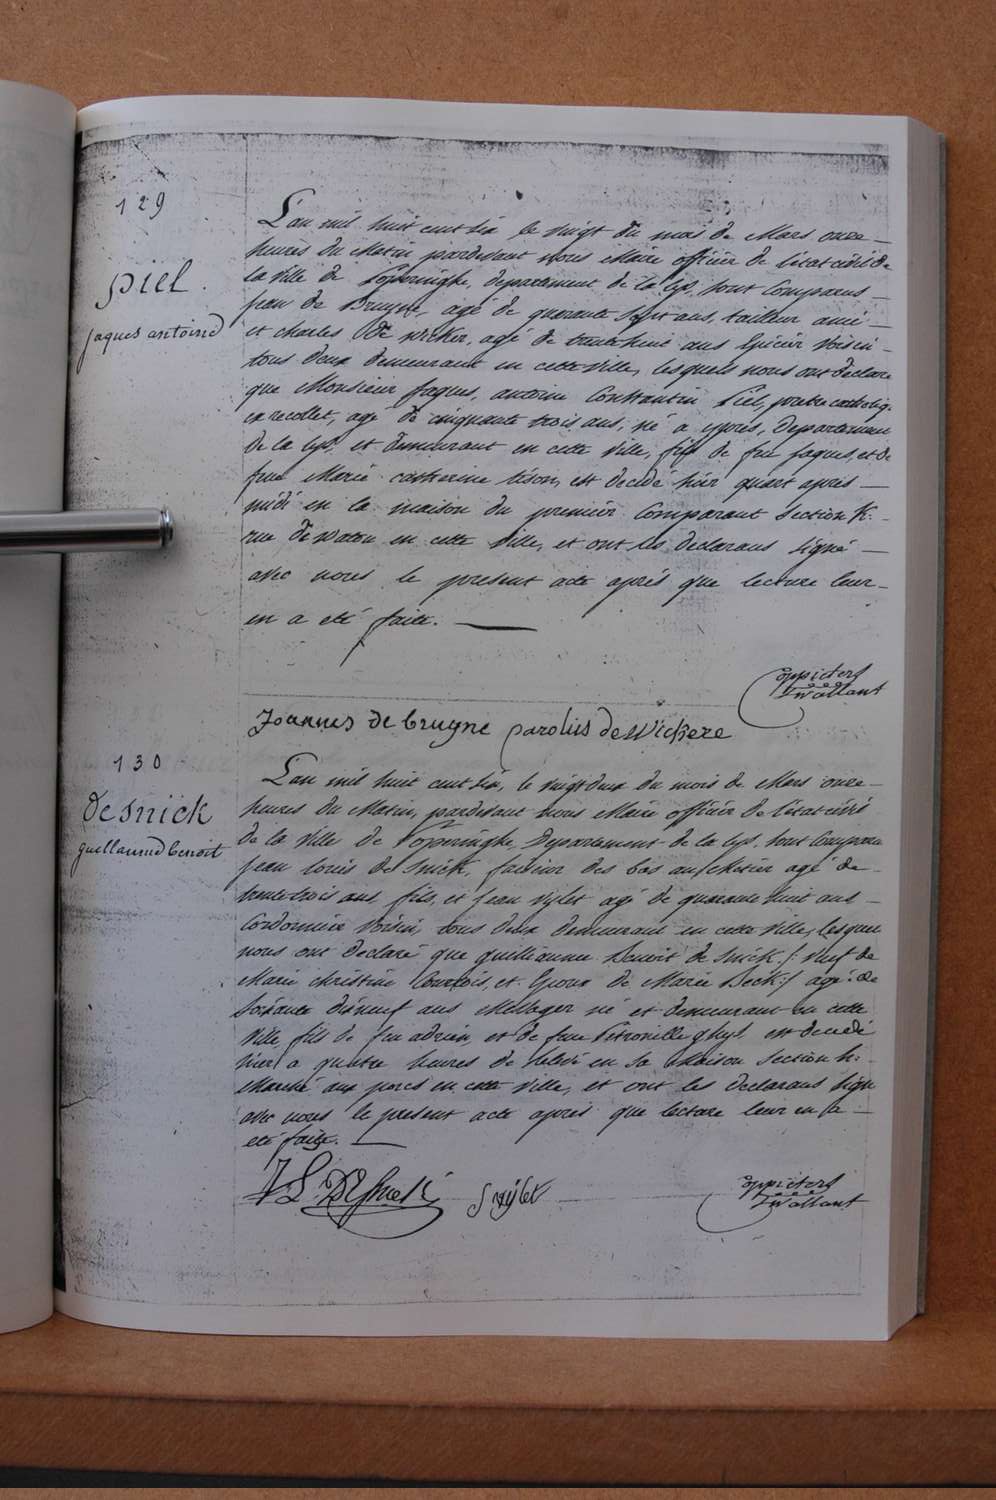 129
piel.
jaques antoine
L'an mil huit cent six le vingt du mois de Mars onze
heures du Matin pardevant nous Maire officier de l'état civil de
la ville de Poperinghe, departement de la lys, sont Comparus
jean de Bruyne, agé de quarante sept ans, tailleur ami
et charles de wicker, agé de trente ans Epicier voisin
tous deux demeurant en cette ville, lesquels nous ont declaré
que Monsieur jaques, antoine Constantin Piel, pretre catholiq.
ex recollet, agé de cinquante trois ans, né a ypres, departemen
de la lys, et demeurant en cette ville, fils de feu jaques, et de
feue Marie catherine tison, est decedé hier quart après
midi en la maison du premier Comparant section K.
rue de waton en cette ville, et ont les declarans signé
avec nous le present acte après que lecture leur
en a eté faite.
oppieters
Jwallant
Joannes de bruyne Carolus de Wickere
130
de Snick
guillaume benoit
L'an mil huit cent six, le vingt deux du mois de Mars onze
heures du Matin, pardevant nous Maire officier de l'état civil
de la ville de Poperinghe, Departement de la lys, sont Compar
jean louis de Snick, faiseur des bas au metier agé de
trente trois ans fils, et jean vylet agé de quarante huit ans
Cordonnier voisin, tous deux demeurant en cette ville, lesquels
nous ont declaré que guilliaume Benoit de Snick /: veuf de
Marie christine Courtois, et Epoux de Marie Beck :/ agé de
soixante dixneuf ans Messager né et demeurant en cette
ville fils de feu adrien, et de feue Petronille ghys, est decedé
hier a quatre heures de relevé en sa Maison section h.
Marché aux porcs en cette ville, et ont les declarans sign
avec nous le present acte après que lecture leur en a
eté faite.
J L DeSnick
J vylet
oppieters
Jwallant